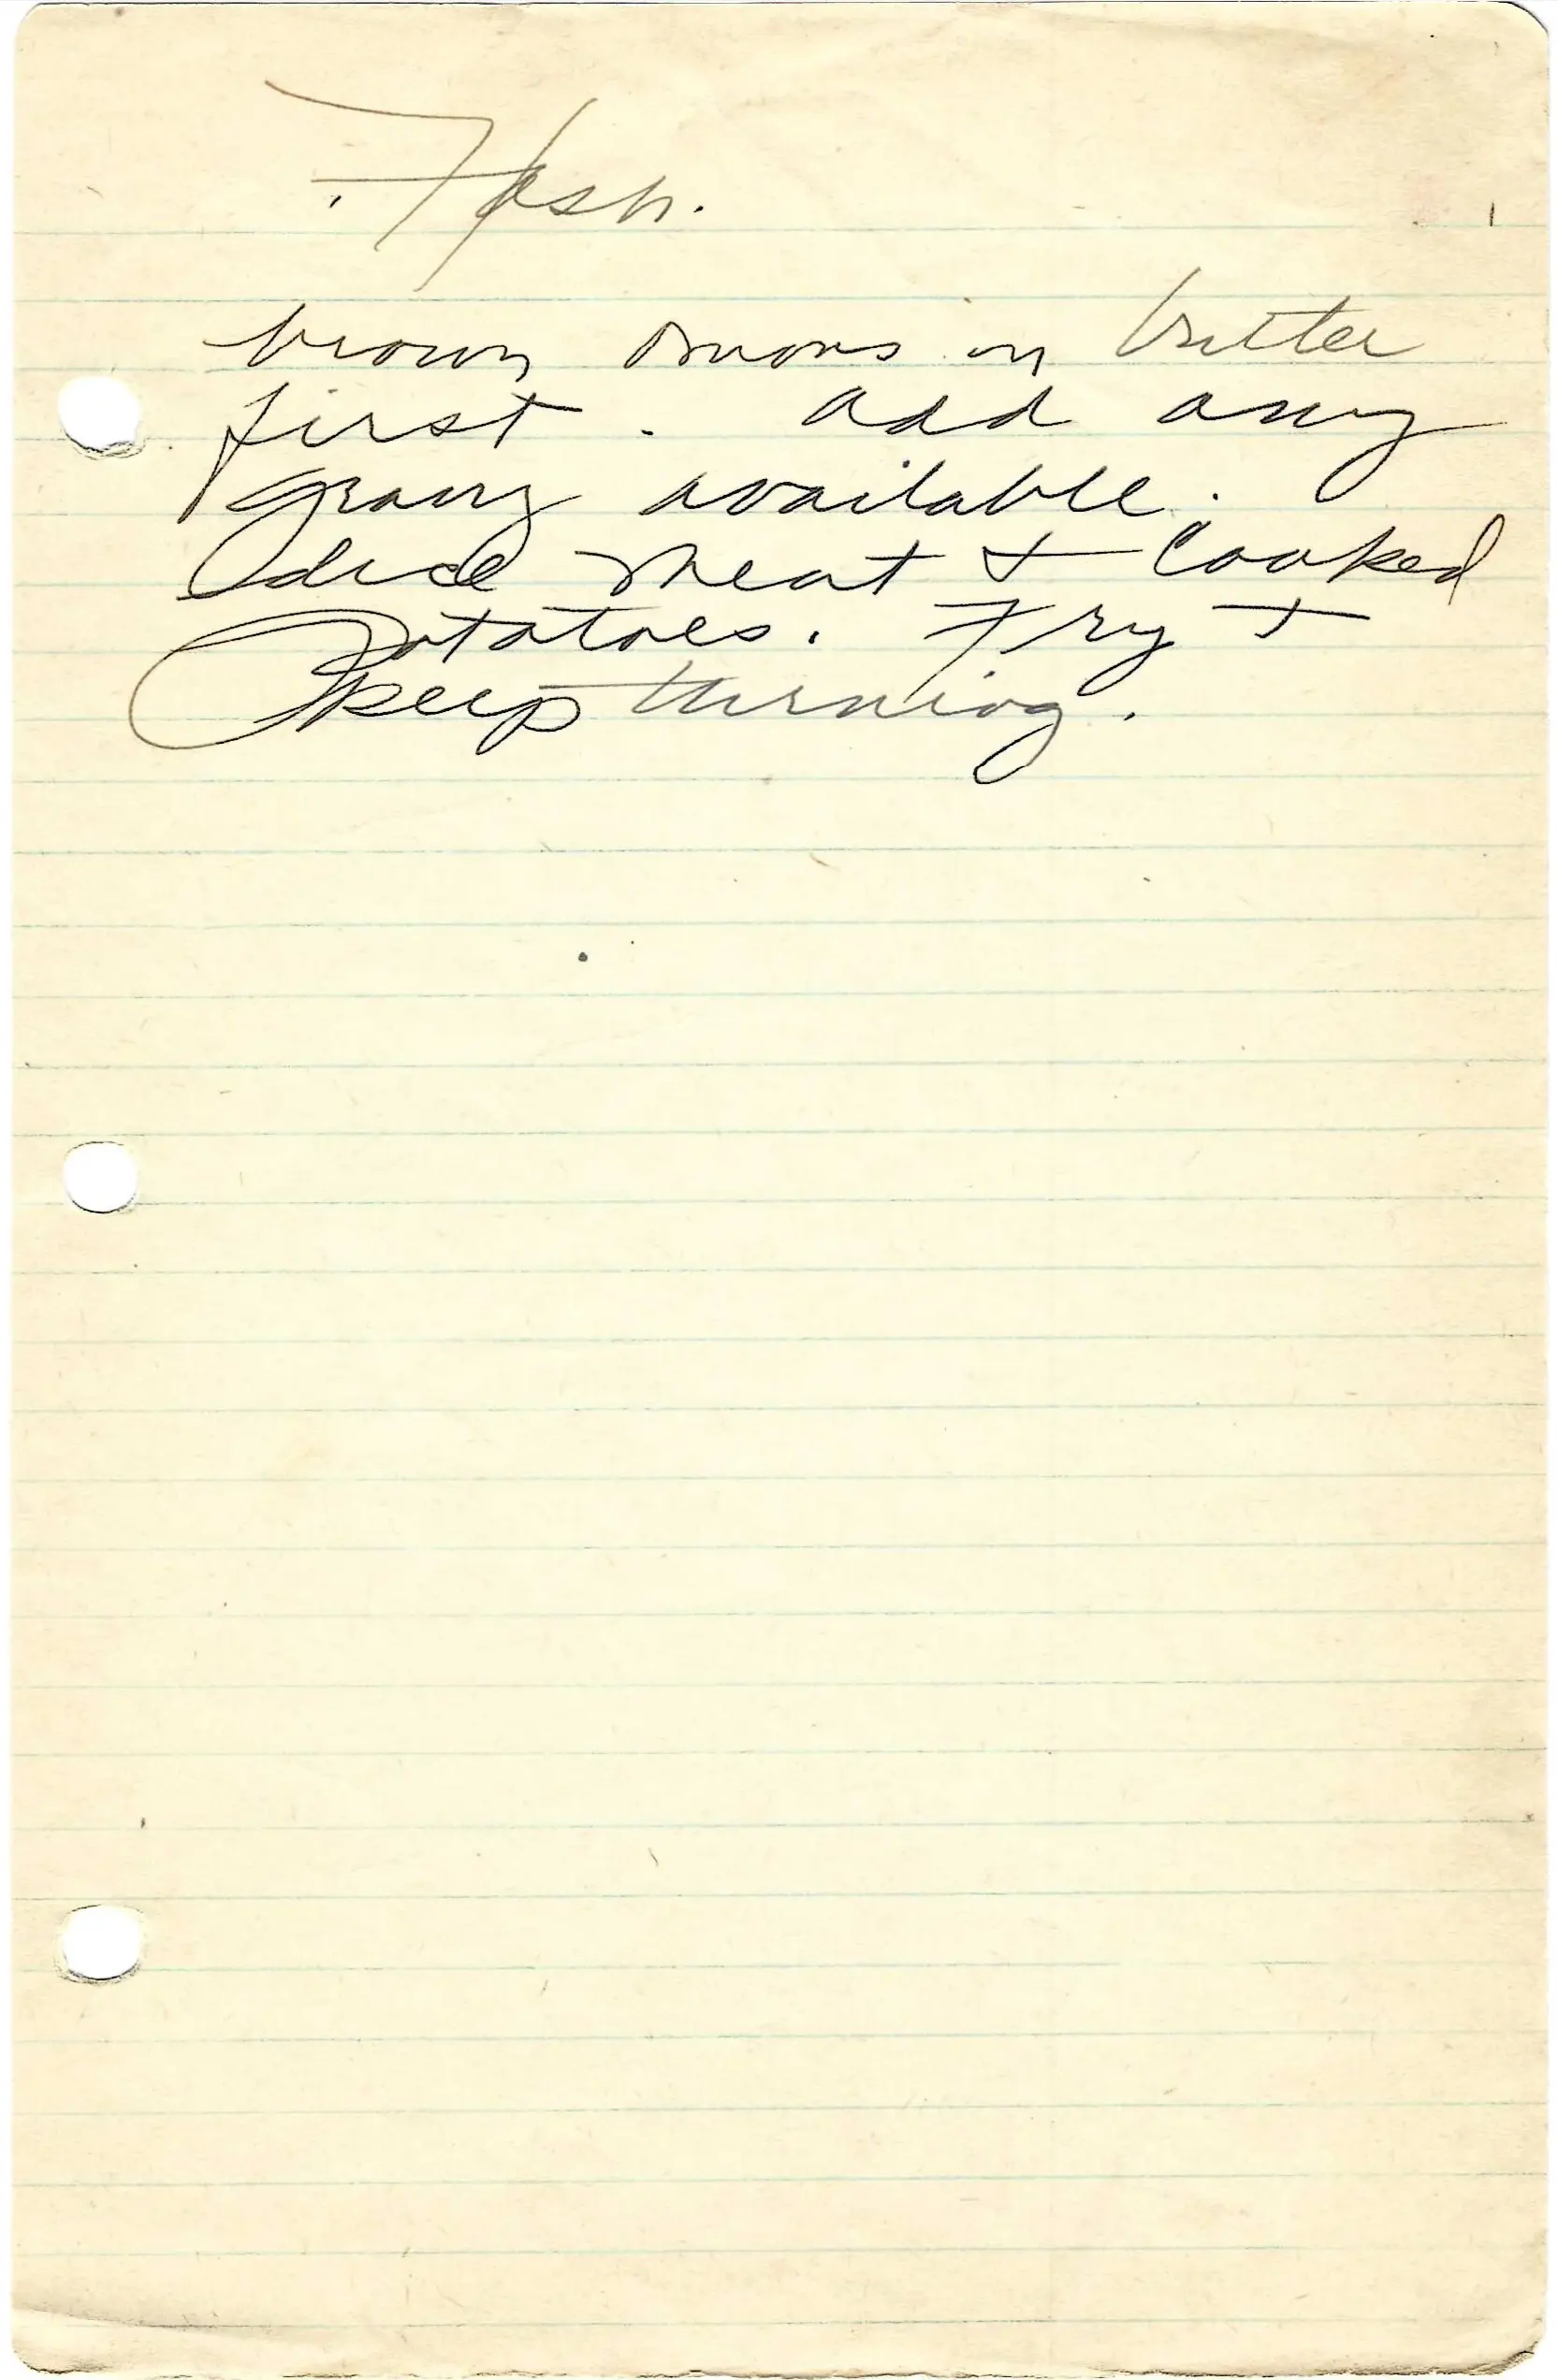 Hash.
brown onions in butter
first. add any
gravy available.
dice meat + cooked
Potatoes. Fry +
keep turning.